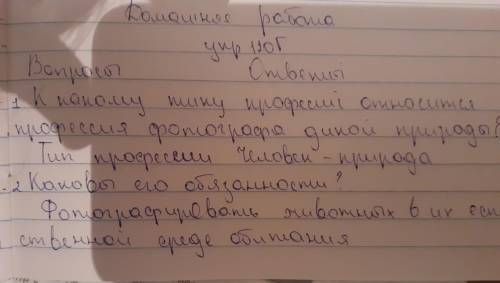 Домашняя работа
упр 110Б
Вопросы Ответы
1 К какому типу професий относится
профессия фотографа дикой природы?
Тип профессии Человек - природа
2 Каковы его обязанности?
Фотографировать животных в их есте
ственной среде обитания